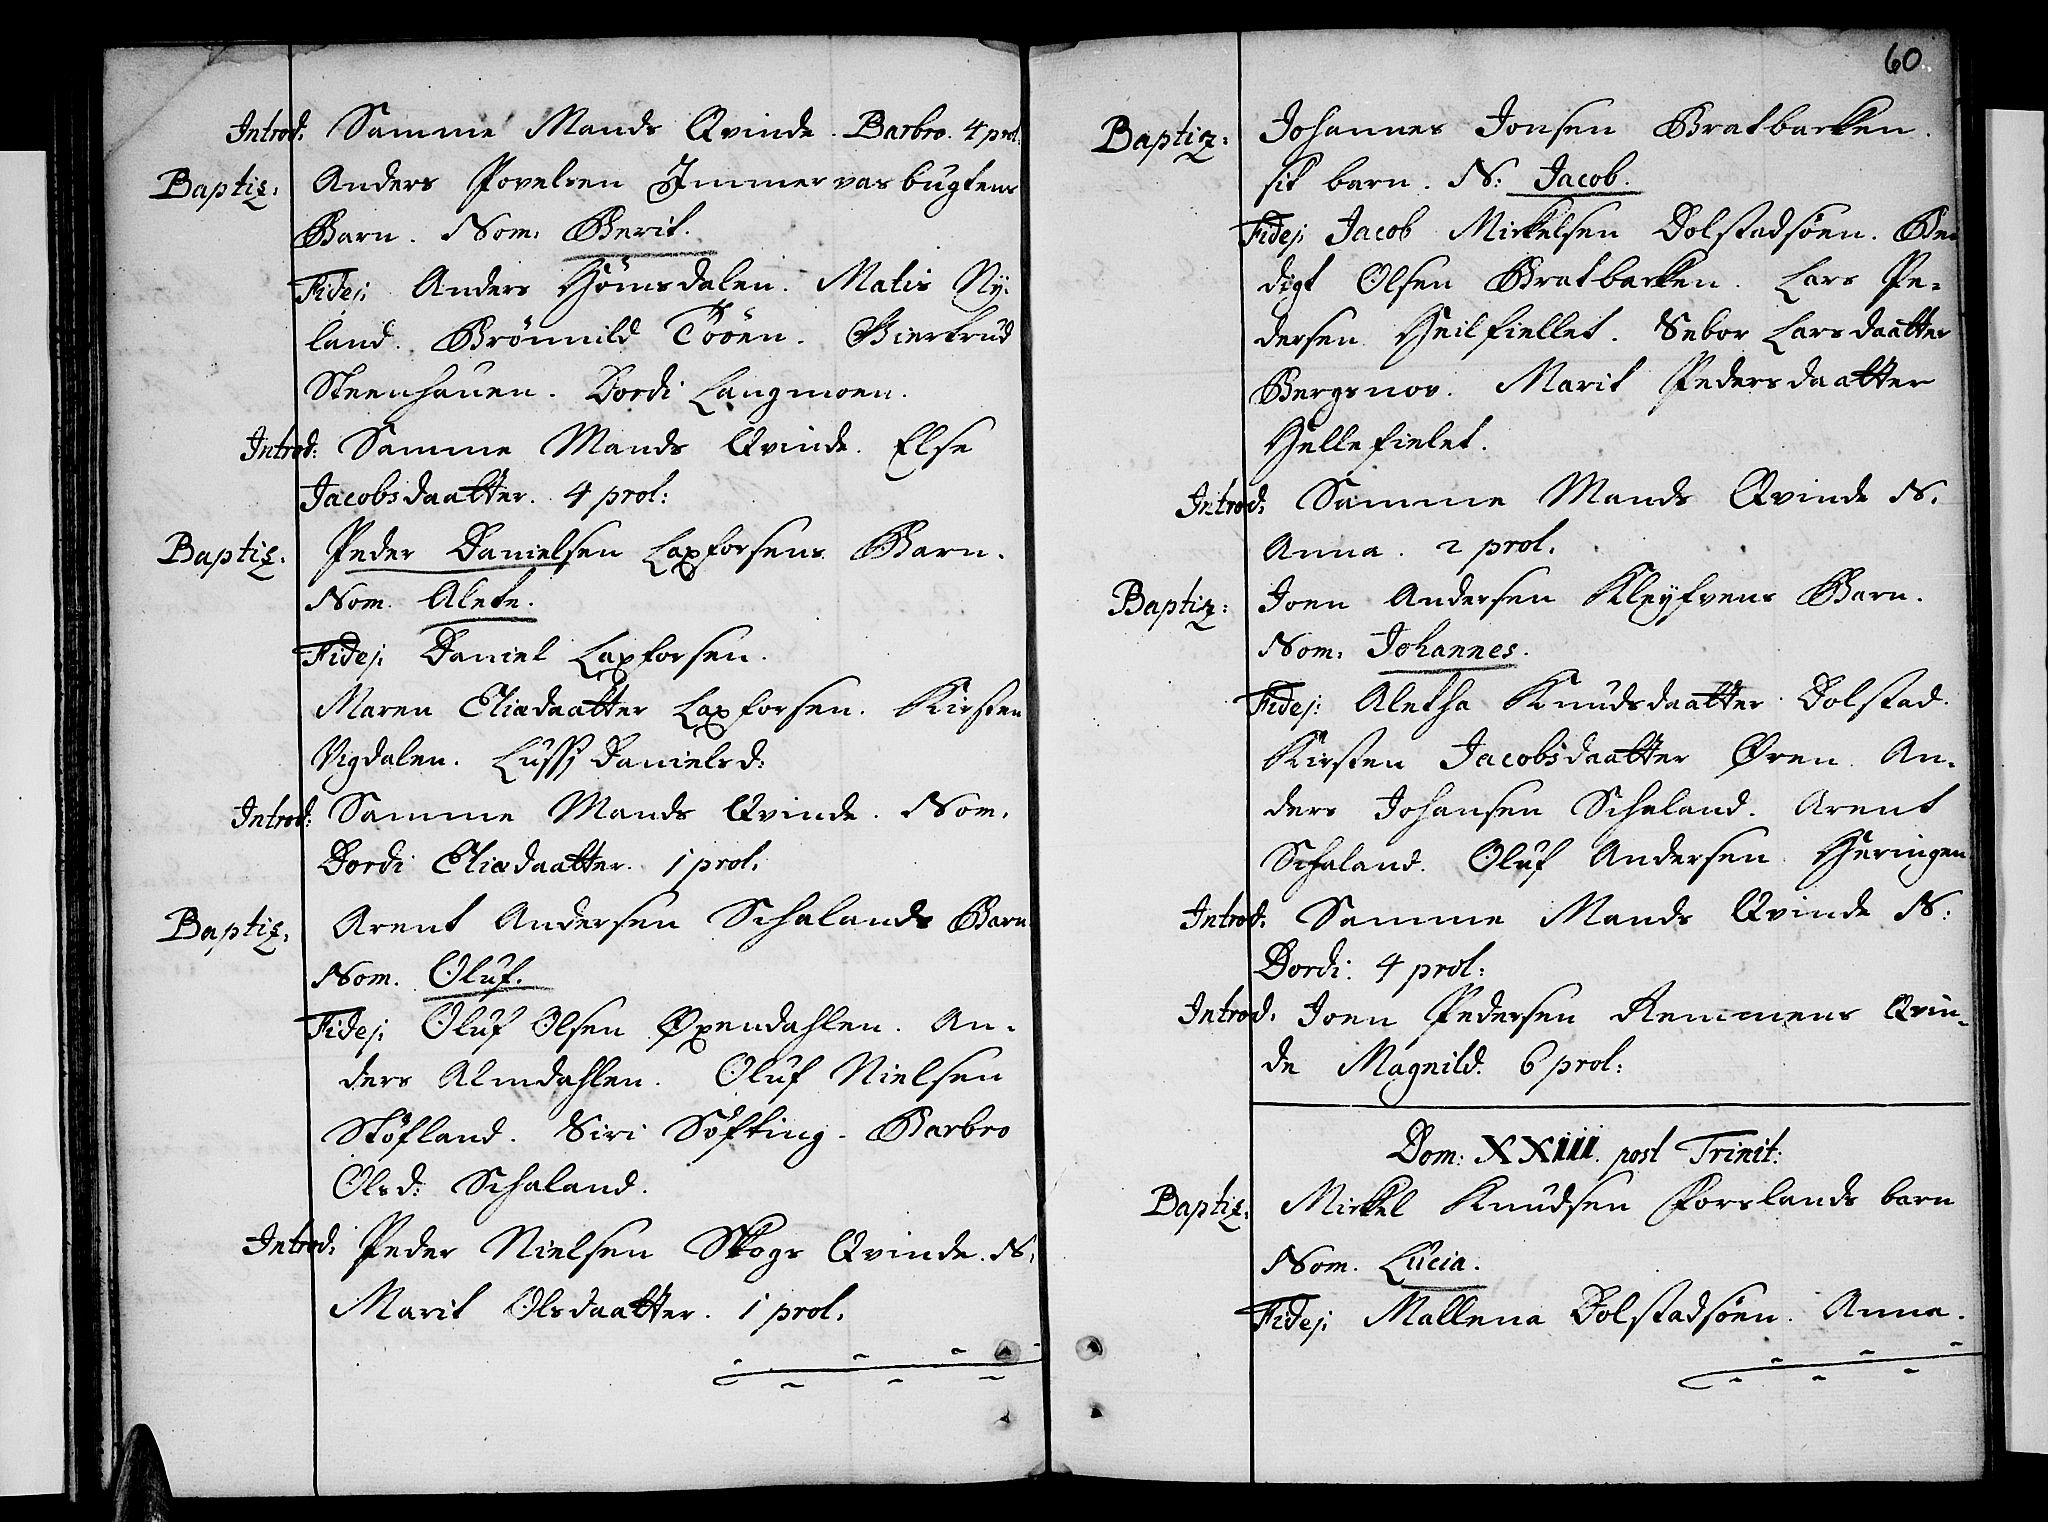 Introd: Samme Mands Qvinde. Barbro. 4 prol:
Baptiz: Anders Povelsen Immervasbugtens
Barn. Nom: Berit.
Fidej: Anders Hömsdalen. Matis Ny-
land. Brönnild Toöen. Giertrud
Steenhauen. Dordi Langmoen.
Introd: Samme Mands Qvinde. Else
Jacobsdaatter. 4 prol:
Baptiz: Peder Danielsen Laxforsens Barn.
Nom. Alete.
Fidej: Daniel Laxforsen.
Maren Eliædaatter Laxforsen. Kirsten
Vigdalen. Lussj Danielsd:
Introd: Samme Mands Qvinde. Nom.
Dordi Eliædaatter. 1 prol:
Baptiz: Arent Andersen Schalands Barn
Nom. Oluf.
Fidej: Oluf Olsen Øxendahlen. An-
ders Almdahlen. Oluf Nielsen
Stöfland. Siri Söfting. Barbro
Olsd: Schaland.
Introd: Peder Nielsen Skogs Qvinde. N:
Marit Olsdaatter. 1 prol:
60
Baptiz: Johannes Jonsen Bratbacken.
sit barn. N: Jacob.
Fidej: Jacob Mickelsen Dolstadsöen. Ben
digt Olsen Bratbacken. Lars Pe-
dersen Heilfiellet. Sebor Larsdaatter
Bergsnov. Marit Pedersdaatter
Hellefielet.
Introd: Samme Mands Qvinde N.
Anna. 2 prol.
Baptiz: Joen Andersen Kleyfvens Barn.
Nom: Johannes.
Fidej: Aletha Knudsdaatter Dolstad.
Kirsten Jacobsdaatter Øren. An-
ders Johansen Schaland. Arent
Schaland. Oluf Andersen Heringen
Introd: Samme Mands Qvinde N:
Dordi. 4 prol:
Introd: Joen Pedersen Remmens Qvin-
de Magnild. 6 prol:
Dom: XXIII. post Trinit:
Baptiz: Mickel Knudsen Forslands barn
Nom. Lucia.
Fidej: Mallena Dolstadsöen. Anna.